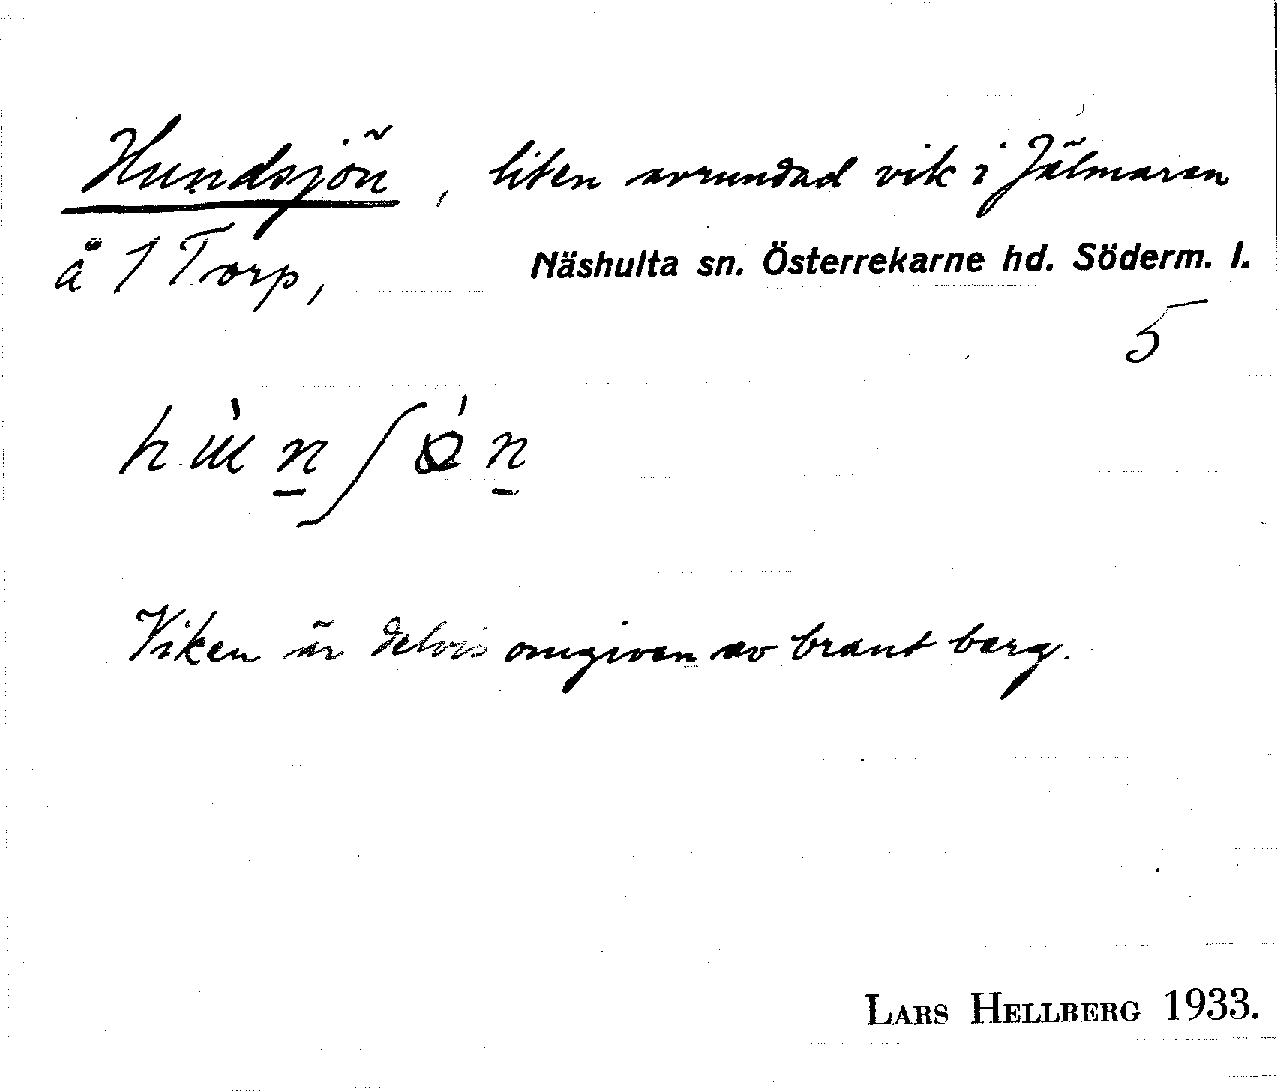 Hundsjön, liten avrundad vik i Jälmaren
å 1 Torp, Näshulta sn. Österrekarne hd. Söderm. l.
5
Viken är delvis omgiven av brant berg.
LARS HELLBERG 1933.